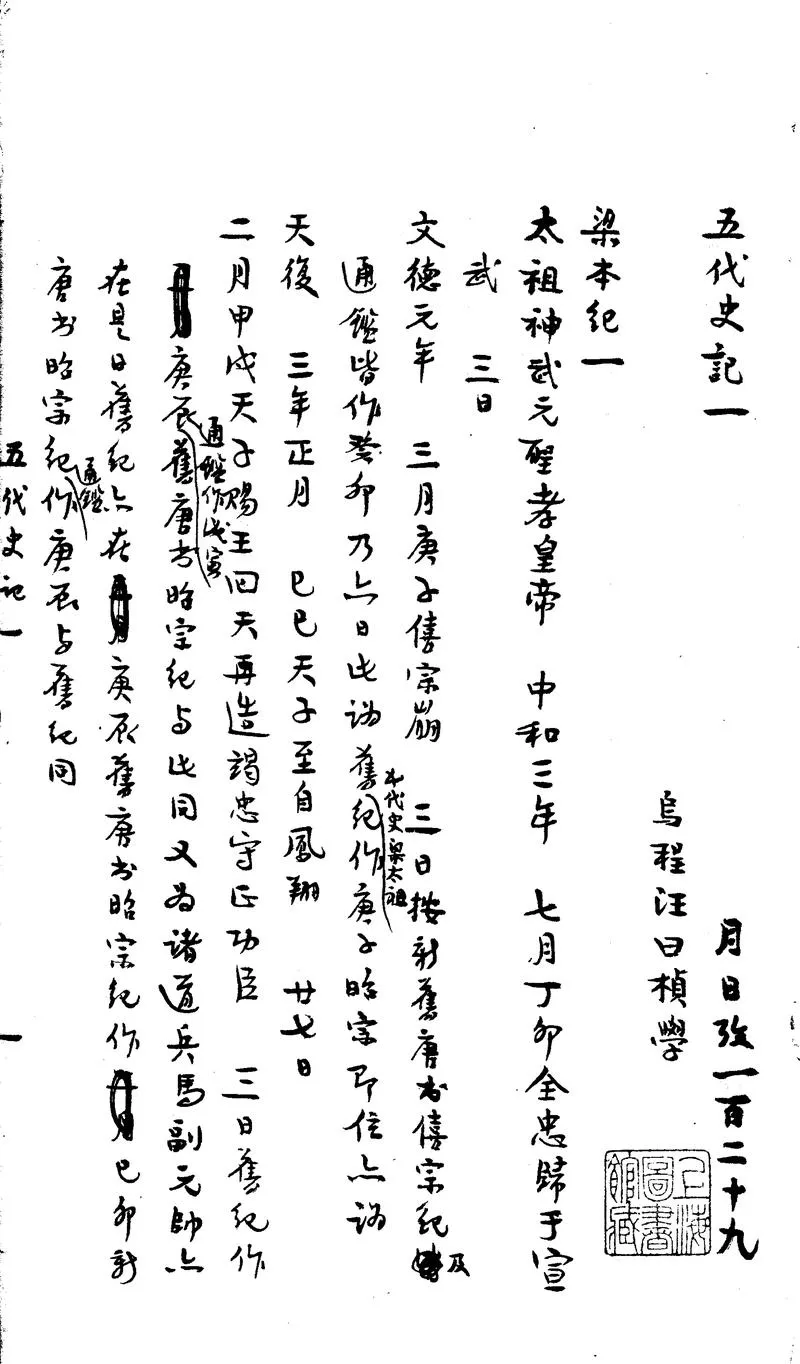 五代史記一
月日攷一百二十九
烏程汪曰楨學
上海圖書館藏
梁本紀一
太祖神武元聖孝皇帝 中和三年 七月丁卯全忠歸于宣
武 三日
文德元年 三月庚子僖宗崩 三日按新舊唐書僖宗紀及
通鑑皆作癸卯乃六日此誤舊紀作庚子昭宗即位亦誤
五代史梁太祖
天復 三年正月 己巳天子至自鳳翔 廿七日
二月甲戌天子賜王回天再造竭忠守正功臣 三日舊紀作
通鑑作戊寅
庚辰舊唐書昭宗紀与此同又為諸道兵馬副元帥亦
在是日舊紀亦在庚辰舊唐書昭宗紀作己卯新
唐書昭宗紀作庚辰与舊紀同
通鑑
五代史記一
一